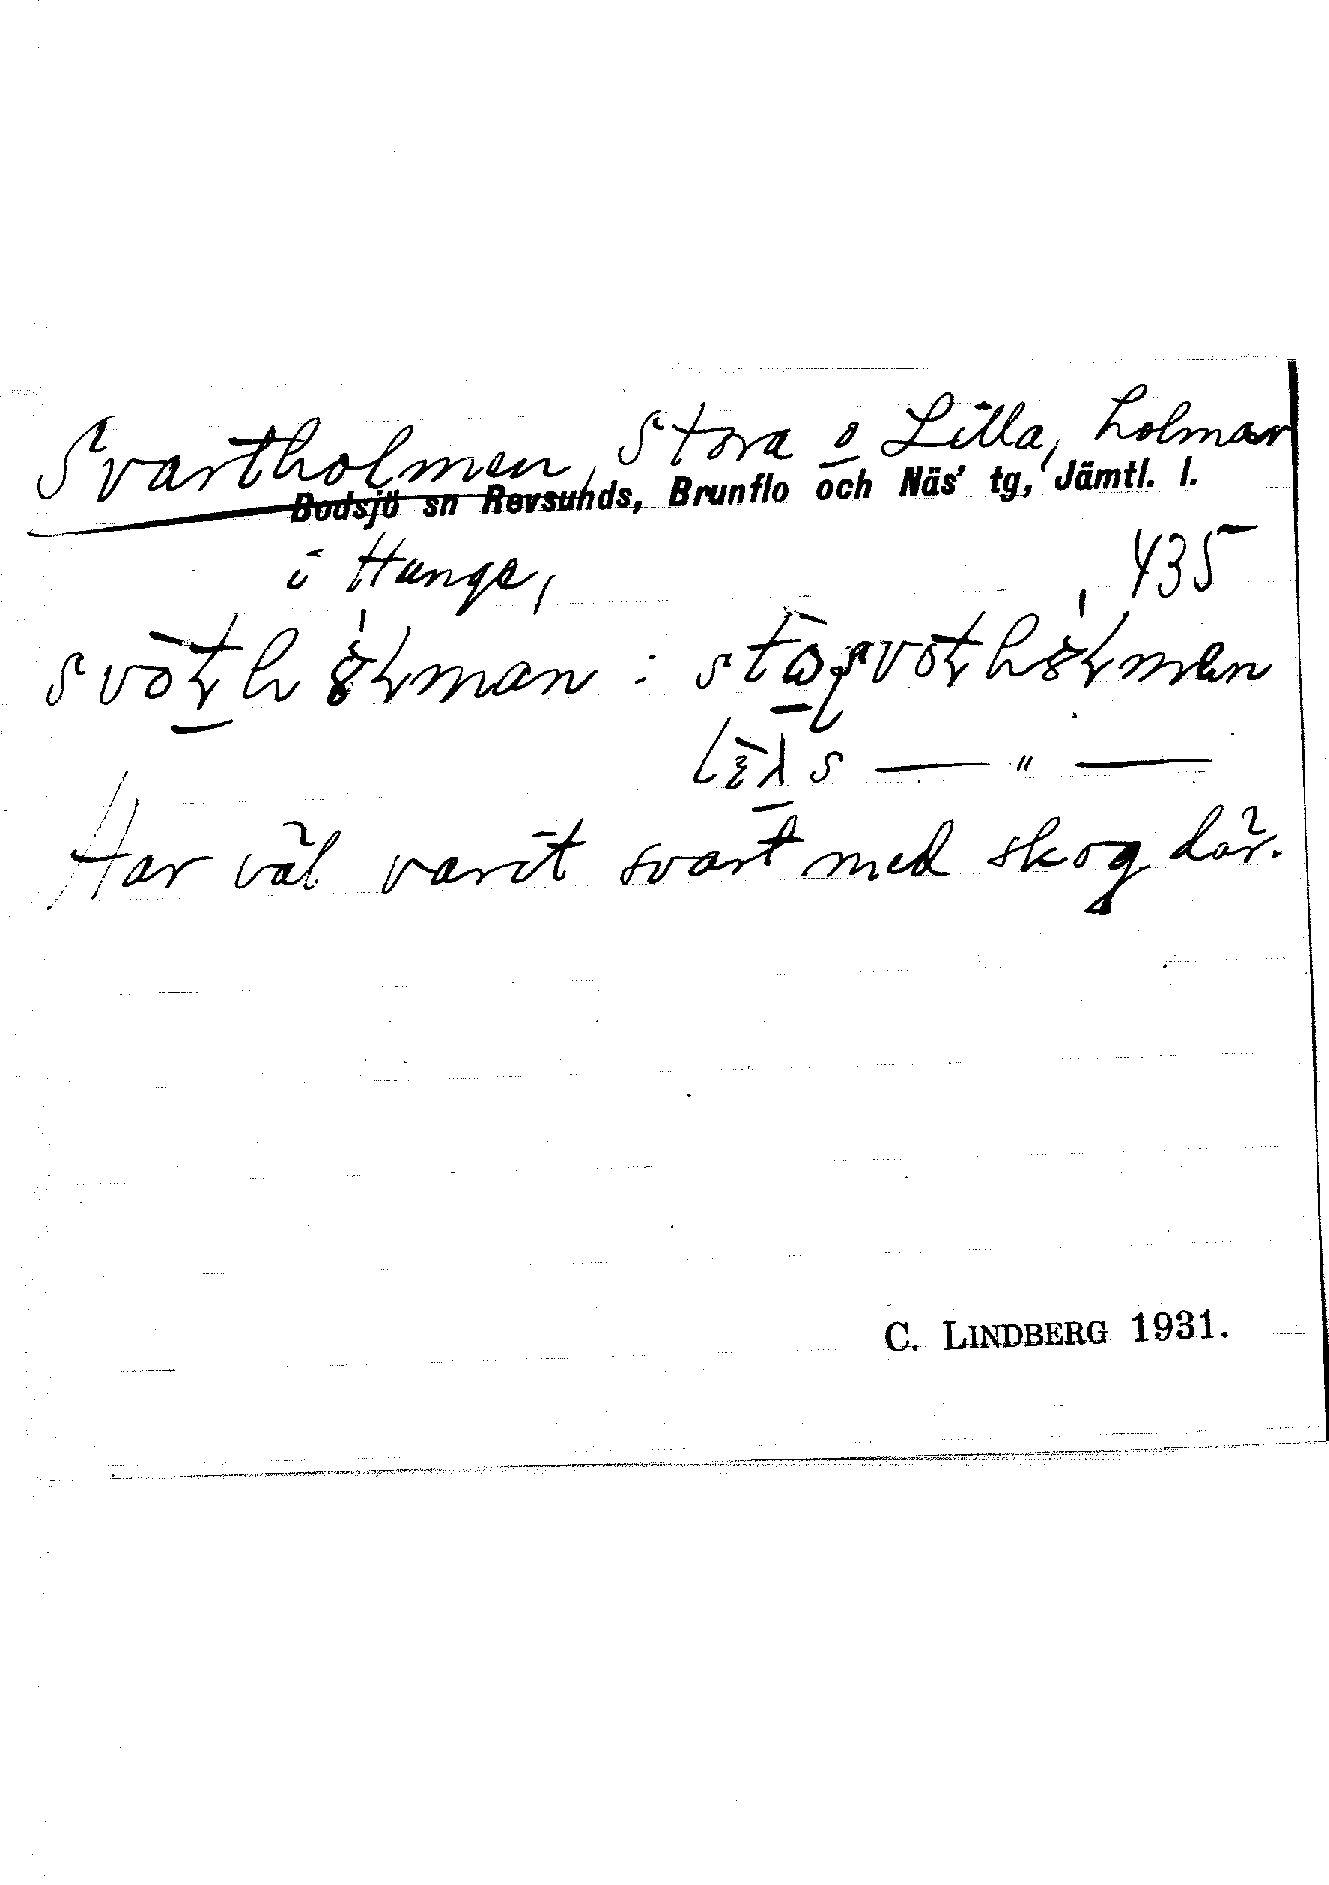 Svartholmen, Stora o Lilla, holmar
Bodsjö sn Revsunds, Brunflo och Näs' tg, Jämtl. l.
i Hunge, 435
Har väl varit svart med skog där.
C. LINDBERG 1931.